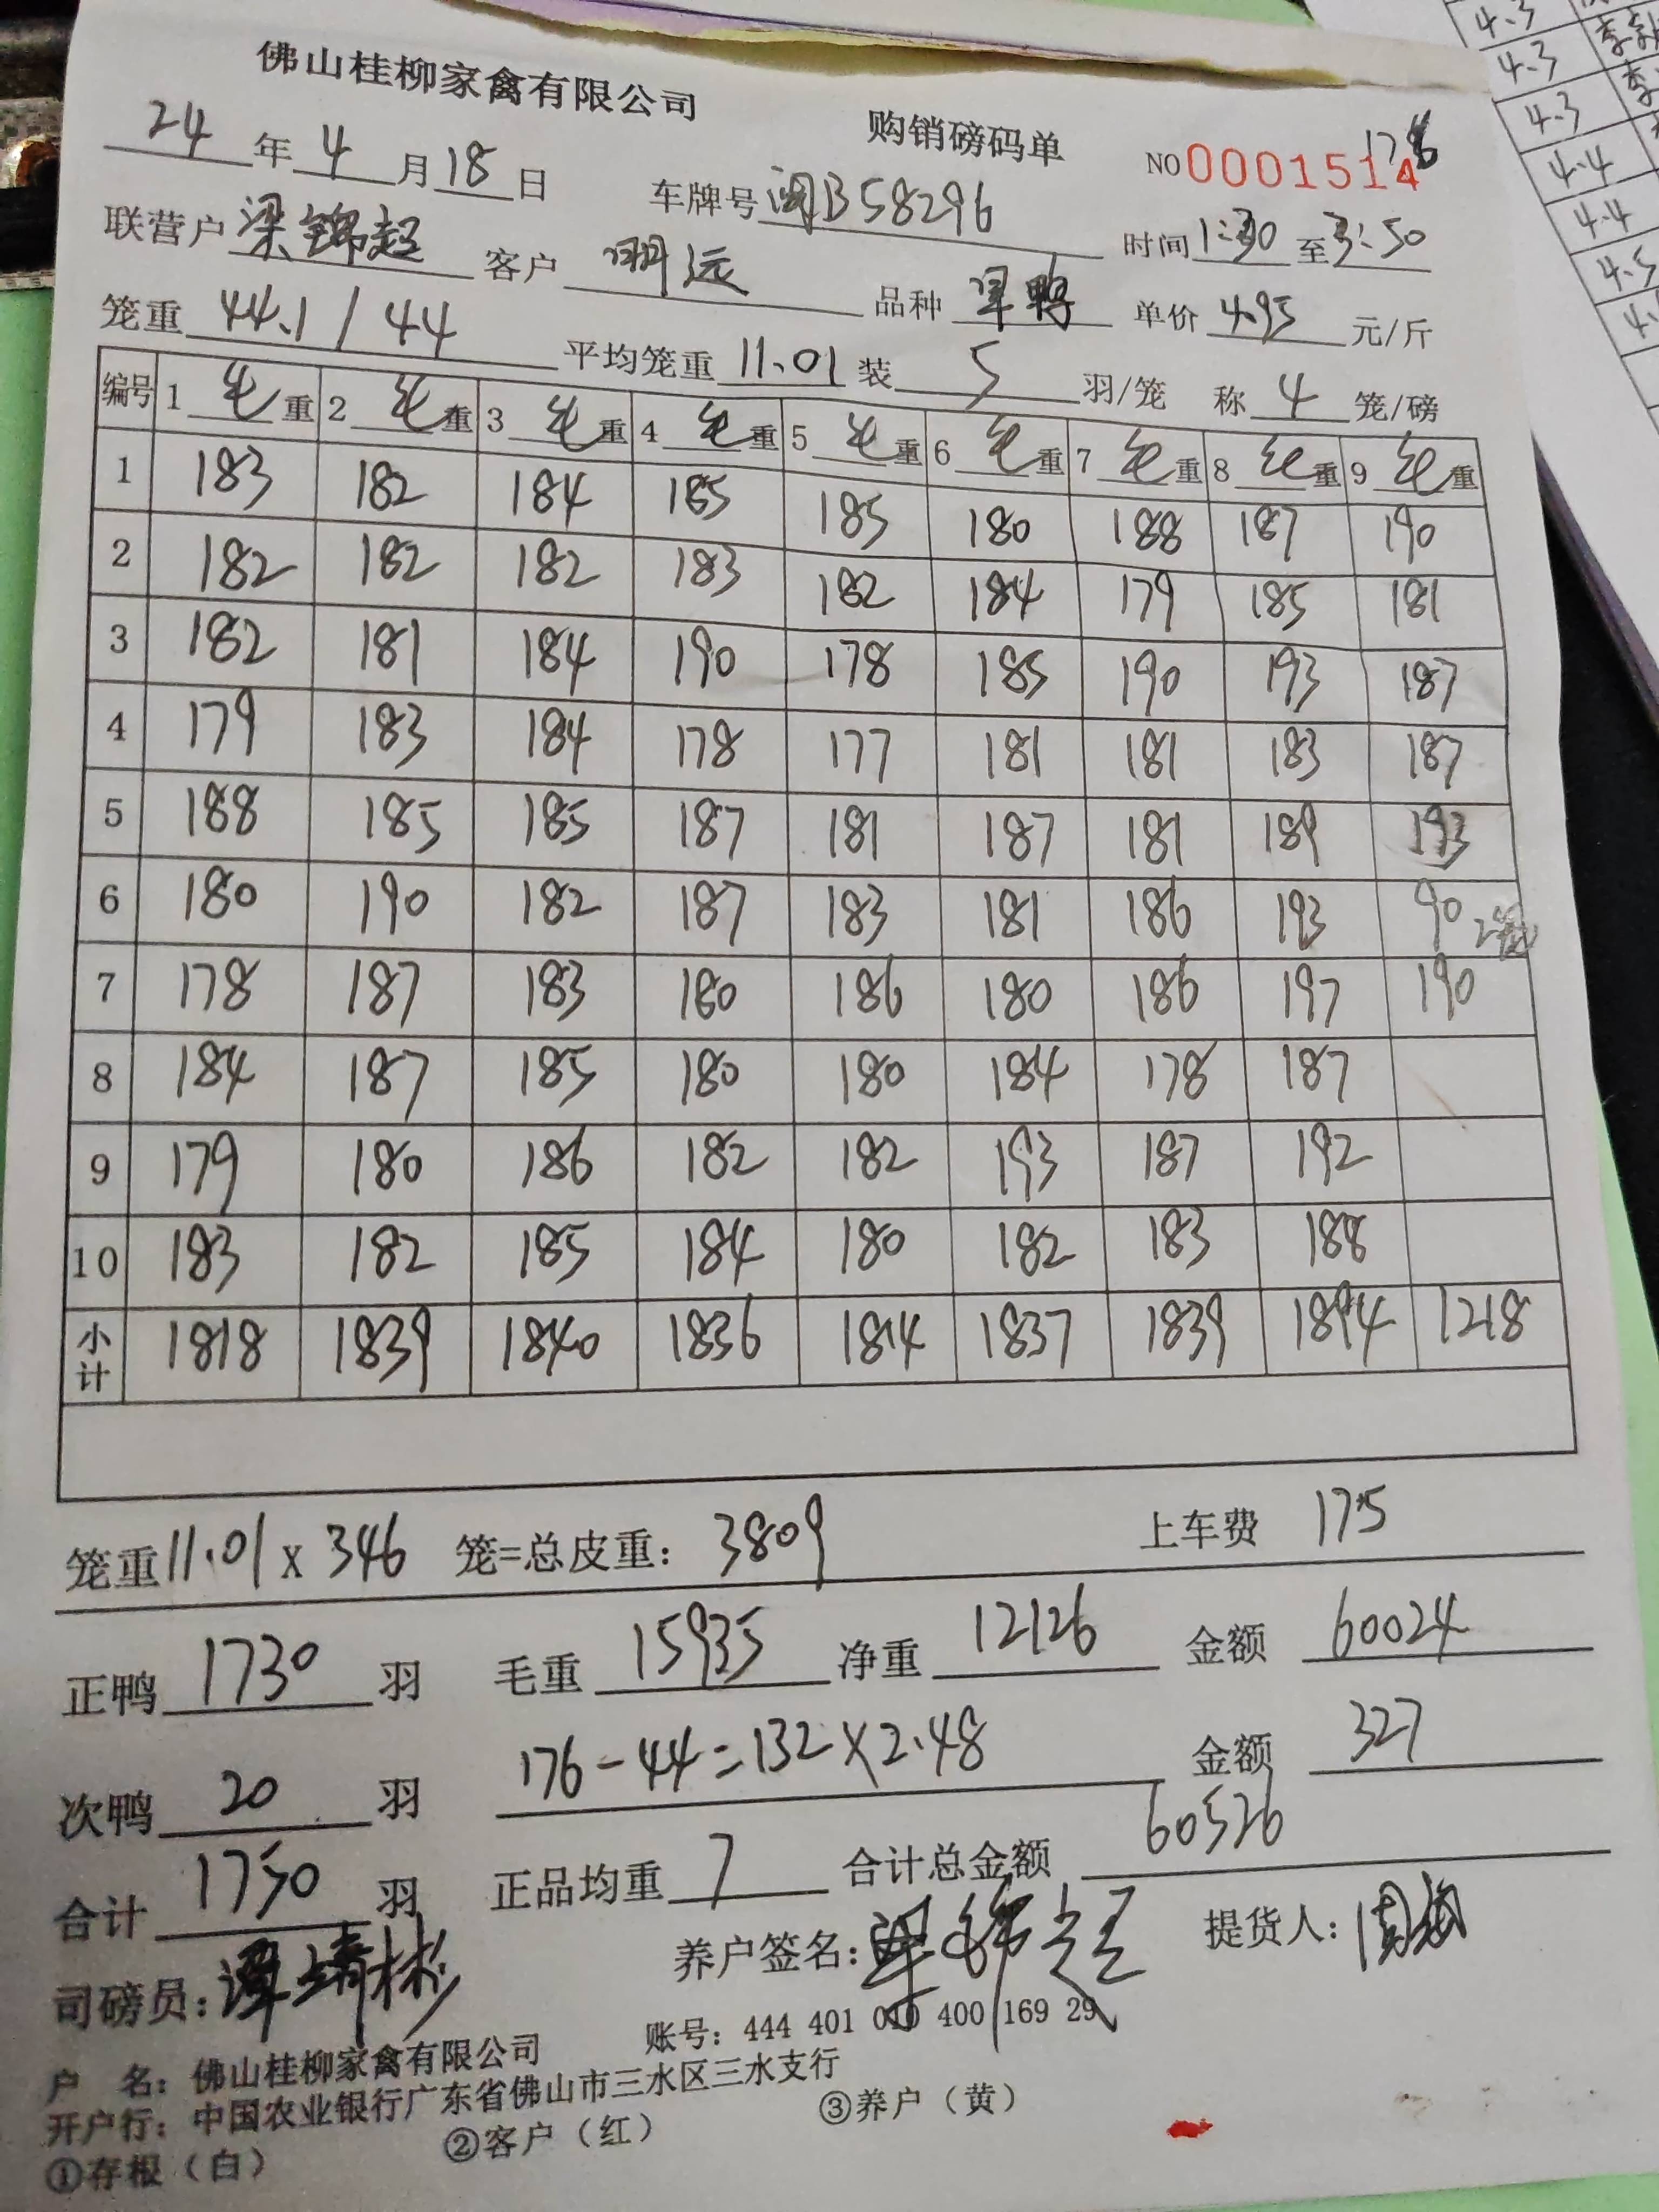 佛山桂柳家禽有限公司
购销磅码单
24年4月18日 车牌号 闽B58296 NO 00015144 176
联营户 梁锦超 客户 明远 时间 1:30 至 3:50
笼重 44.1/44 平均笼重 11.01 装 5 羽/笼 称 4 笼/磅
品种 单价 4.95 元/斤
编号 1 毛重 2 毛重 3 毛重 4 毛重 5 毛重 6 毛重 7 毛重 8 毛重 9 毛重
1 183 182 184 185 185 180 188 187 190
2 182 182 182 183 182 184 179 185 181
3 182 181 184 190 178 185 190 193 187
4 179 183 184 178 177 181 181 183 187
5 188 185 185 187 181 187 181 189 193
6 180 190 182 187 183 181 186 193 90 2笼
7 178 187 183 180 186 180 186 197 190
8 184 187 185 180 180 184 178 187
9 179 180 186 182 182 193 187 192
10 183 182 185 184 180 182 183 188
小计 1818 1839 1840 1836 1814 1837 1839 1894 1218
笼重 11.01 x 346 笼=总皮重: 3809 上车费 175
正鸭 1730 羽 毛重 15935 净重 12126 金额 60024
次鸭 20 羽 176-44=132×2.48 金额 327
合计 1750 羽 正品均重 7 合计总金额 60526
司磅员: 谭靖彬 养户签名: 梁锦超 提货人:
户 名: 佛山桂柳家禽有限公司 账号: 444 401 010 400 169 29
开户行: 中国农业银行广东省佛山市三水区三水支行
①存根(白) ②客户(红) ③养户(黄)
4.3
4.3
4.3
4.4
4.4
4.5